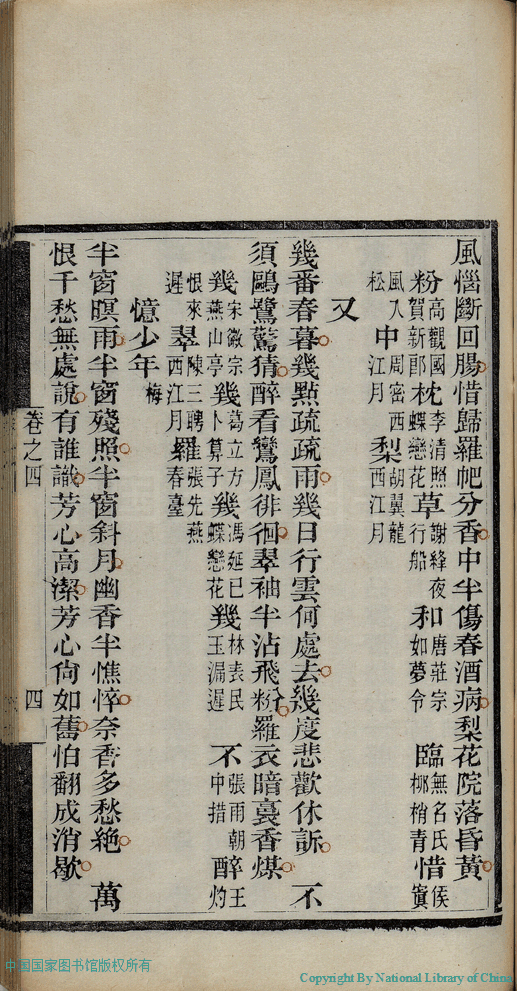 風惱斷回腸惜歸羅帊分香中半傷春酒病梨花院落昏黃
粉高觀國賀新郎枕李清照蝶戀花草謝絳夜行船和唐莊宗如夢令臨無名氏柳梢青惜侯寘
風入松中周密西江月梨胡翼龍西江月
又
幾番春暮幾點疏疏雨幾日行雲何處去幾度悲歡休訴 不
須鷗鷺驚猜醉看鸞鳳徘徊翠袖半沾飛粉羅衣暗裛香煤
幾宋徽宗燕山亭幾葛立方卜算子幾馮延巳蝶戀花幾林表民玉漏遲不張雨朝中措醉王灼
恨來遲翠陳三聘西江月羅張先燕春臺
憶少年 梅
半窗暝雨半窗殘照半窗斜月幽香半憔悴奈香多愁絶 萬
恨千愁無處說有誰識芳心高潔芳心尙如舊怕翻成消歇
卷之四 四
中国国家图书馆版权所有
Copyright By National Library of China